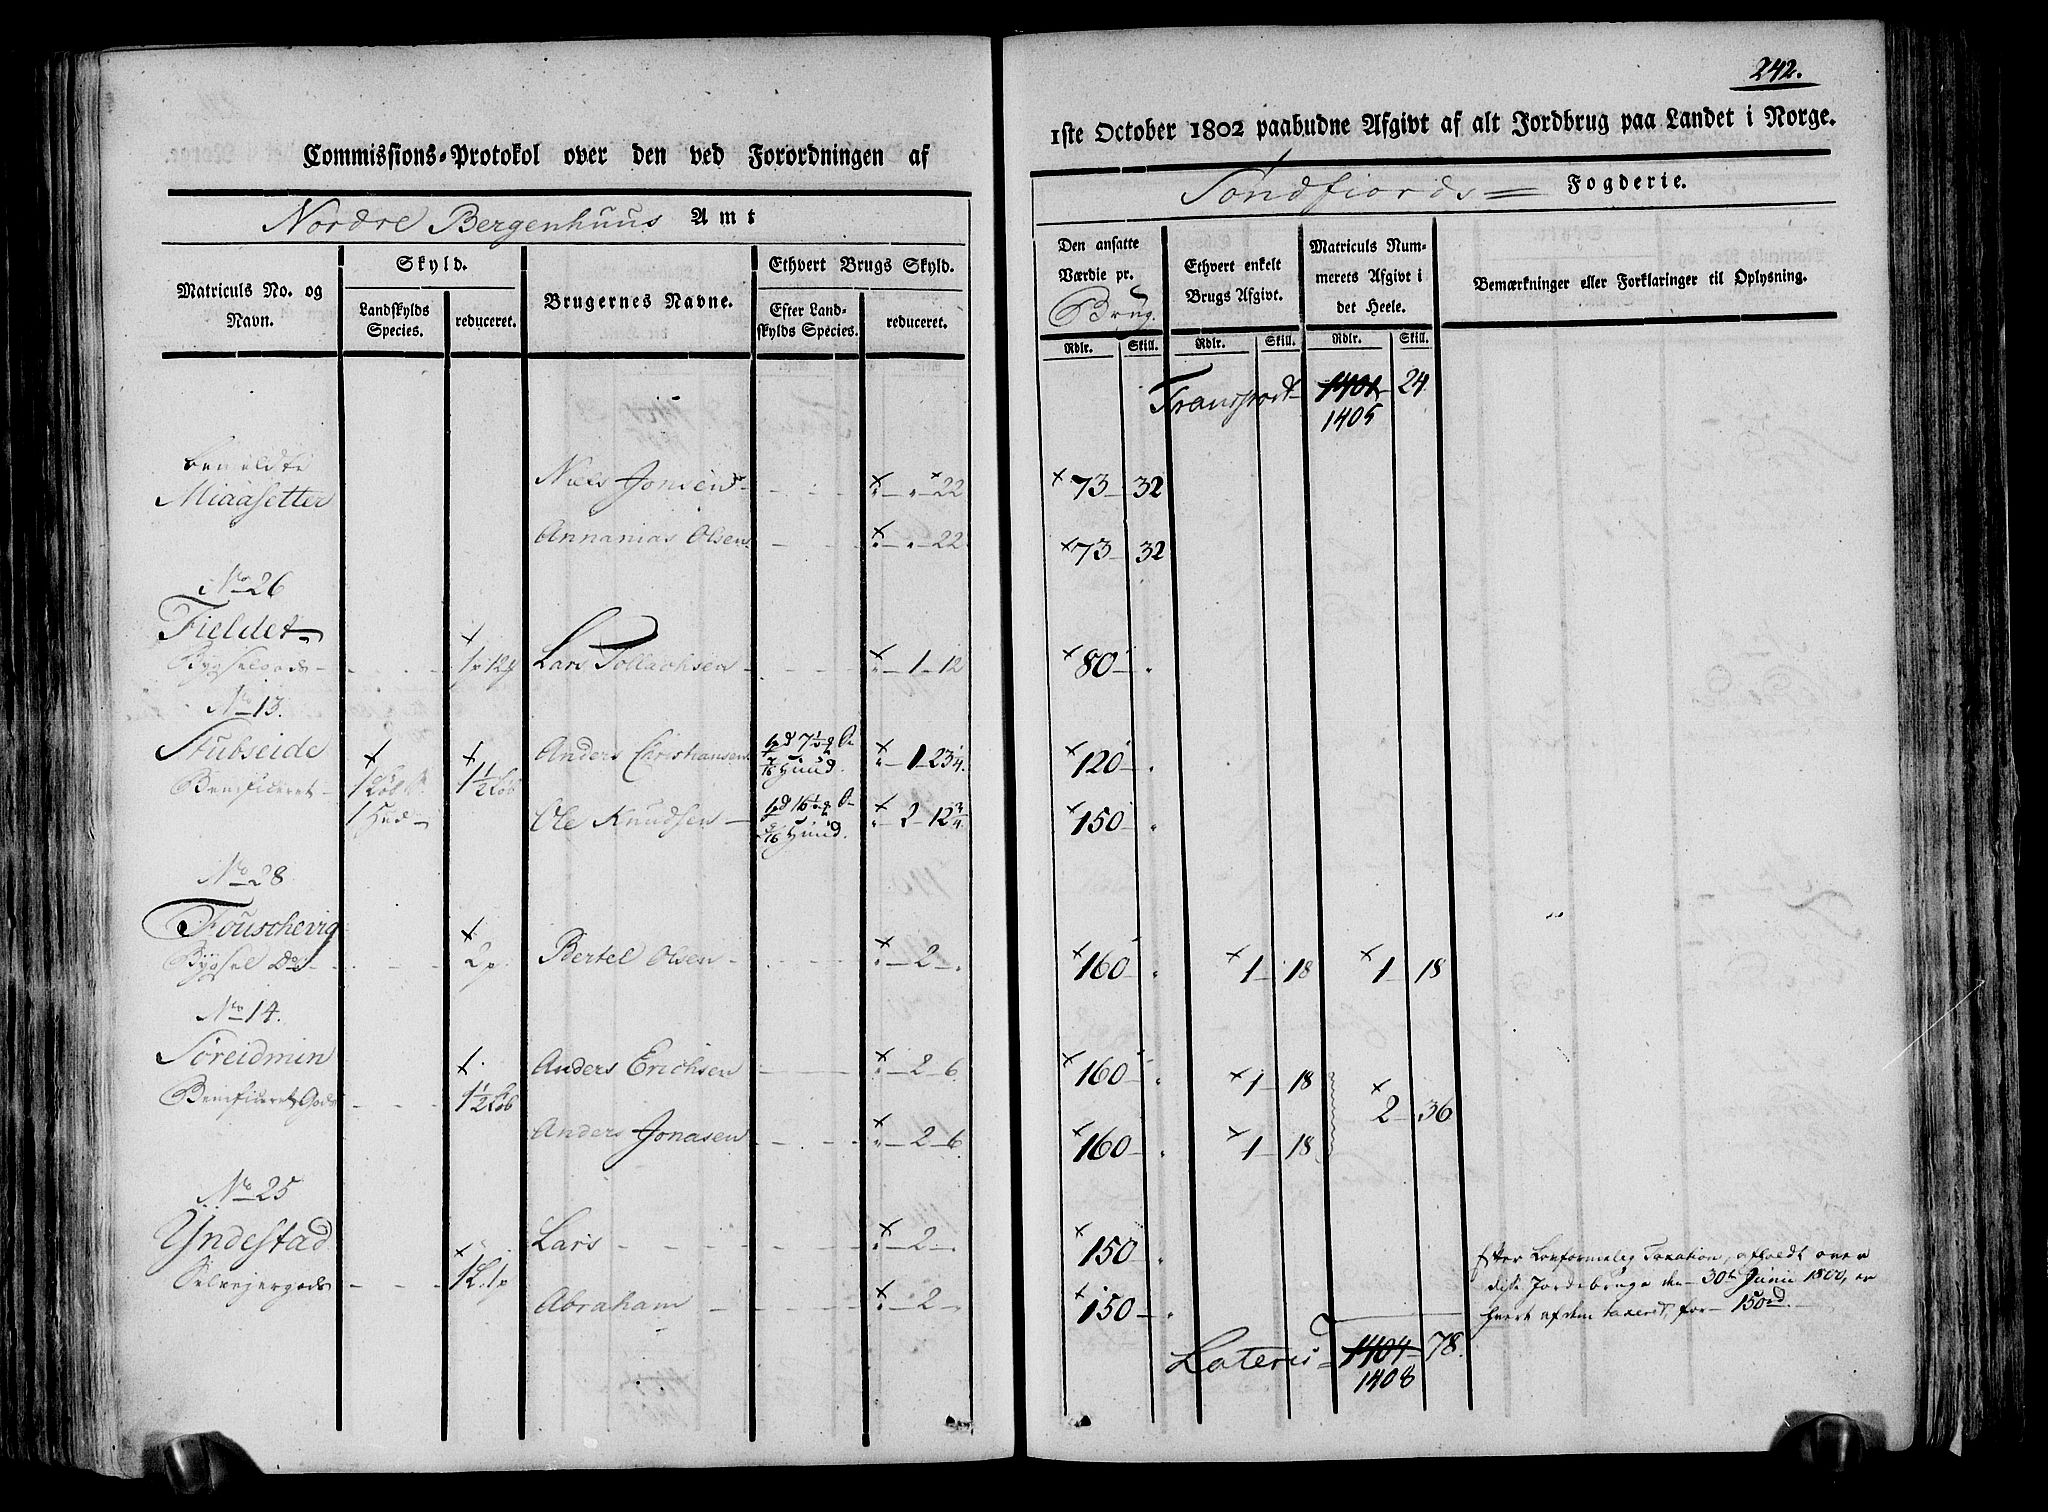 242.
Commissions-Protokol over den ved Forordningen af
1ste October 1802 paabudne Afgivt af alt Jordbrug paa Landet i Norge.
Nordre Bergenhuus Amt
Søndfiords Fogderie.
Matriculs No. og Navn.
Skyld.
Landskylds Species.
reduceret.
Brugernes Navne.
Ethvert Brugs Skyld.
Efter Landskylds Species.
reduceret.
Den ansatte Værdie pr. Brug.
Rdlr. Skill.
Ethvert enkelt Brugs Afgivt.
Rdlr. Skill.
Matriculs Nummerets Afgivt i det Heele.
Rdlr. Skill.
Bemærkninger eller Forklaringer til Oplysning.
Transport 1401 24
1405
bemeldte
Miaasetter Niels Jonsen 22 73 32
Annanias Olsen 22 73 32
No 26
Fieldet
Bygselgods Lars Tollachsen 1 12 80
No 13.
Stubseide Anders Christiansen 1 23 1/4 120
Beneficeret 1 1/2 Løb
1 Hud Ole Knudsen 2 12 3/4 150
No 28
Fouschevig
Bygsel Do 2 p Bertel Olsen 2 160 1 18 1 18
No 14.
Søreidmin Anders Erichsen 2 6 160 1 18
Beneficeret Gods 1 1/2 Løb 2 36
Anders Jonasen 2 6 160 1 18
No 25
Yndestad Lars 2 150
Selvejergods Abraham 2 150
Efter Lovformelig Taxation, afholdt over
disse Jordebruge den 30te Junii 1800, er
hvert af dem taxeret for 150 rd.
Lateris 1404 78.
1408